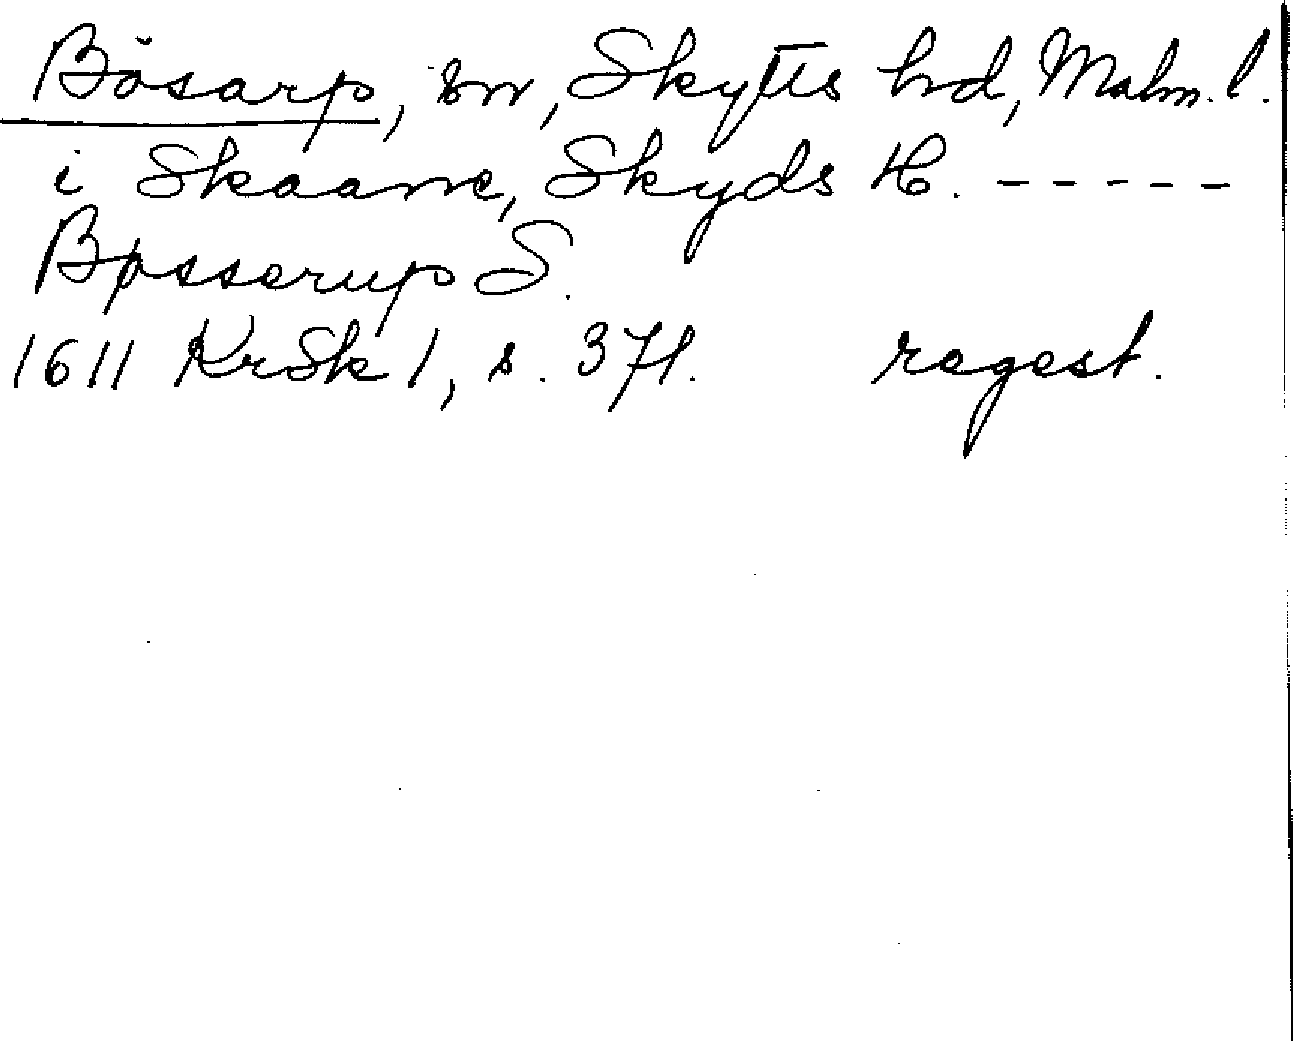 Bösarp, sn, Skytts hd, Malm. l.
i Skaane, Skyds H. - - - - -
Bøsserup S.
1611 KrSk 1, s. 371. regest.